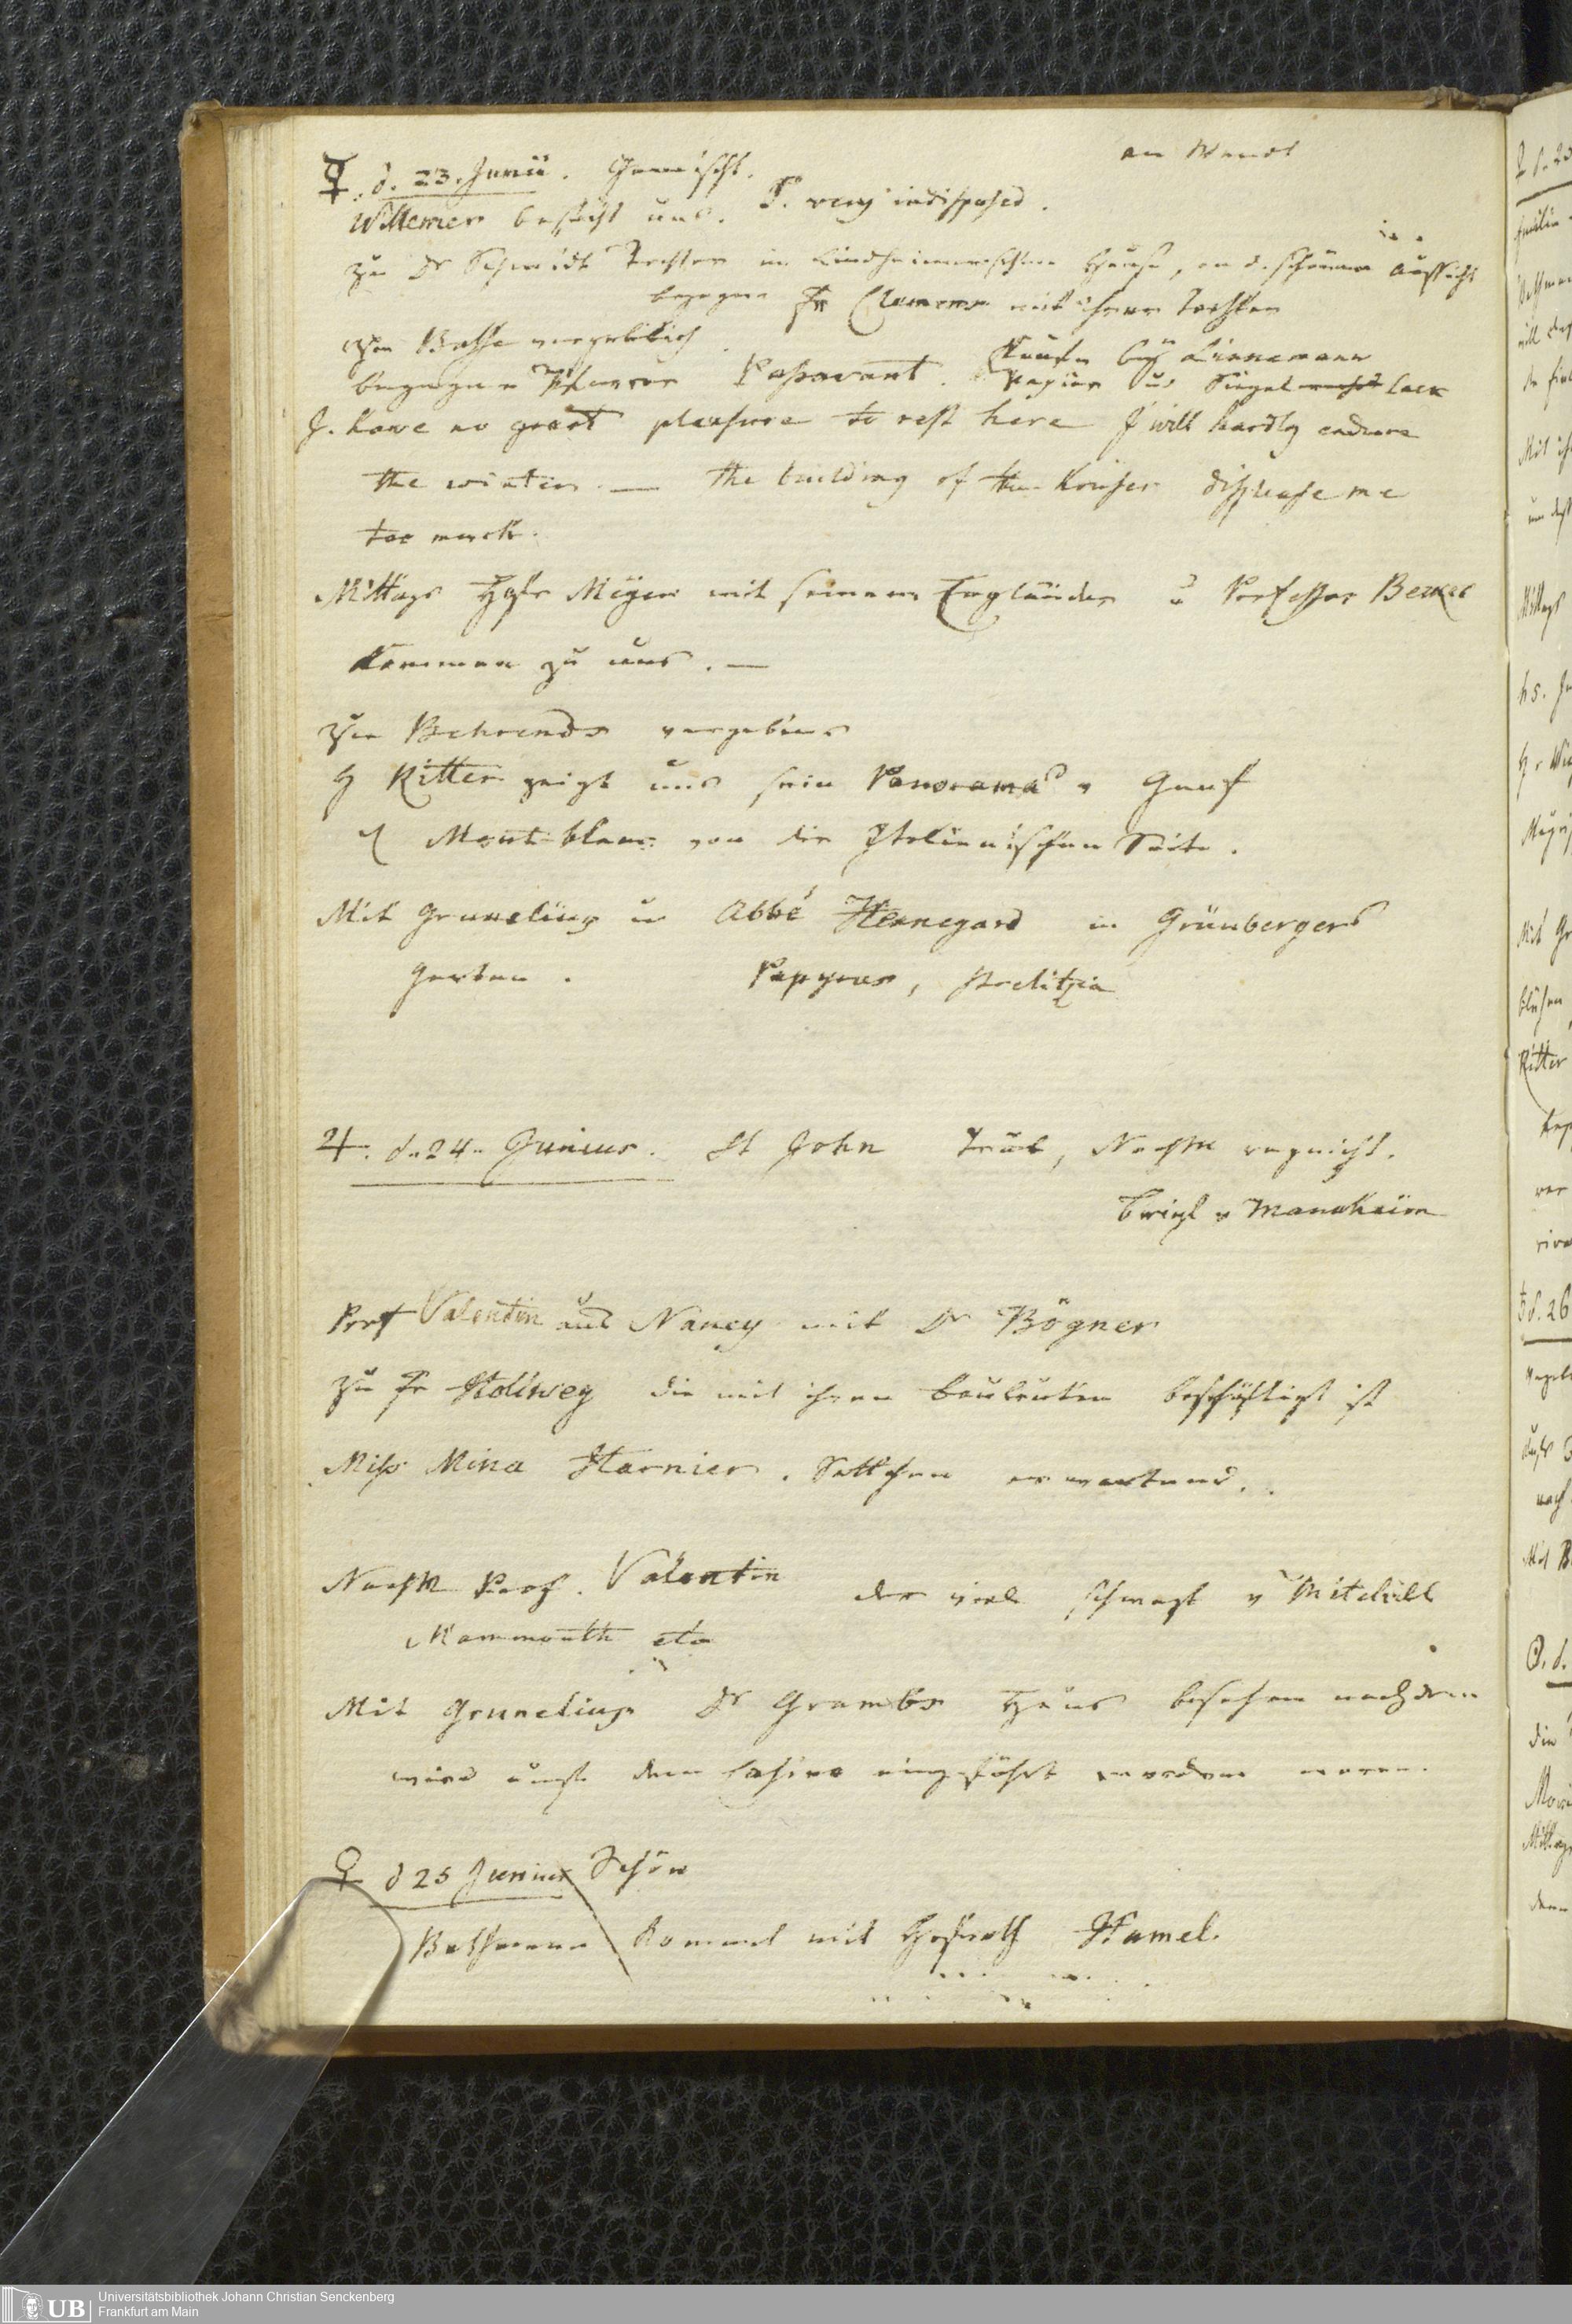 an Wendt
☿. d. 23. Junii. Gemischt.
Willemer besucht uns. S. very indisposed.
zu Dr Schmidt Tochter im Lindheimerschen Hause, an d. schönen Aussicht
begegne Fr Clemens mit ihrer Tochter
zu Basse vergeblich.
Kaufe bey Linnemann
begegne Pfarrer Passavant. Papier u Siegel lack
J. have no great pleasure to rest here J will hardly endure
the winter. — the building of the houses displease me
too much.
Mittags Hgfr Meyer mit seinem Engländer u Professor Becker
kommen zu uns. —
zu Behrends vergebens
H Ritter zeigt uns sein Panorama v Genf
u Mont-blanc von der Italienischen Seite.
Mit Grunelius u Abbé Hennegard in Grünbergers
Garten. Papyrus, Strelitzia
♃. d. 24. Junius. St John Trüb, Nachm regnicht.
Briefe v Mannheim
Prof Valentin aus Nancy mit Dr Bögner
zu Fr Hollweg die mit ihren Bauleuten beschäftigt ist
Miss Mina Harnier. Settchen erwartend.
Nachm Prof. Valentin der viel schwazt v Mitchill
Mammouth etc
Mit Grunelius Dr Grambs Haus besehen nachdem
wir aufs dem Casino eingeführt worden waren.
♀ d 25 Junius Schön
Bethmann kommt mit Hofrath Hamel.
Universitätsbibliothek Johann Christian Senckenberg
Frankfurt am Main
UB